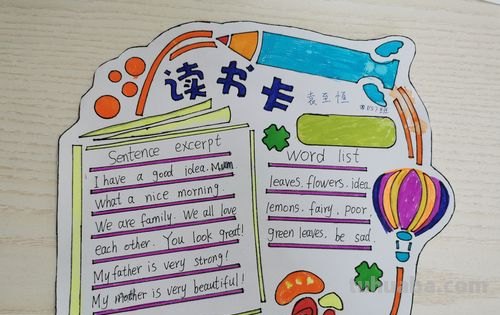 读书卡
袁至恒
Sentence excerpt
I have a good idea, Mum.
What a nice morning.
We are family. We all love
each other. You look great!
My father is very strong!
My mother is very beautiful!
Word list
leaves. flowers. idea
lemons. fairy. poor.
green leaves. be sad.